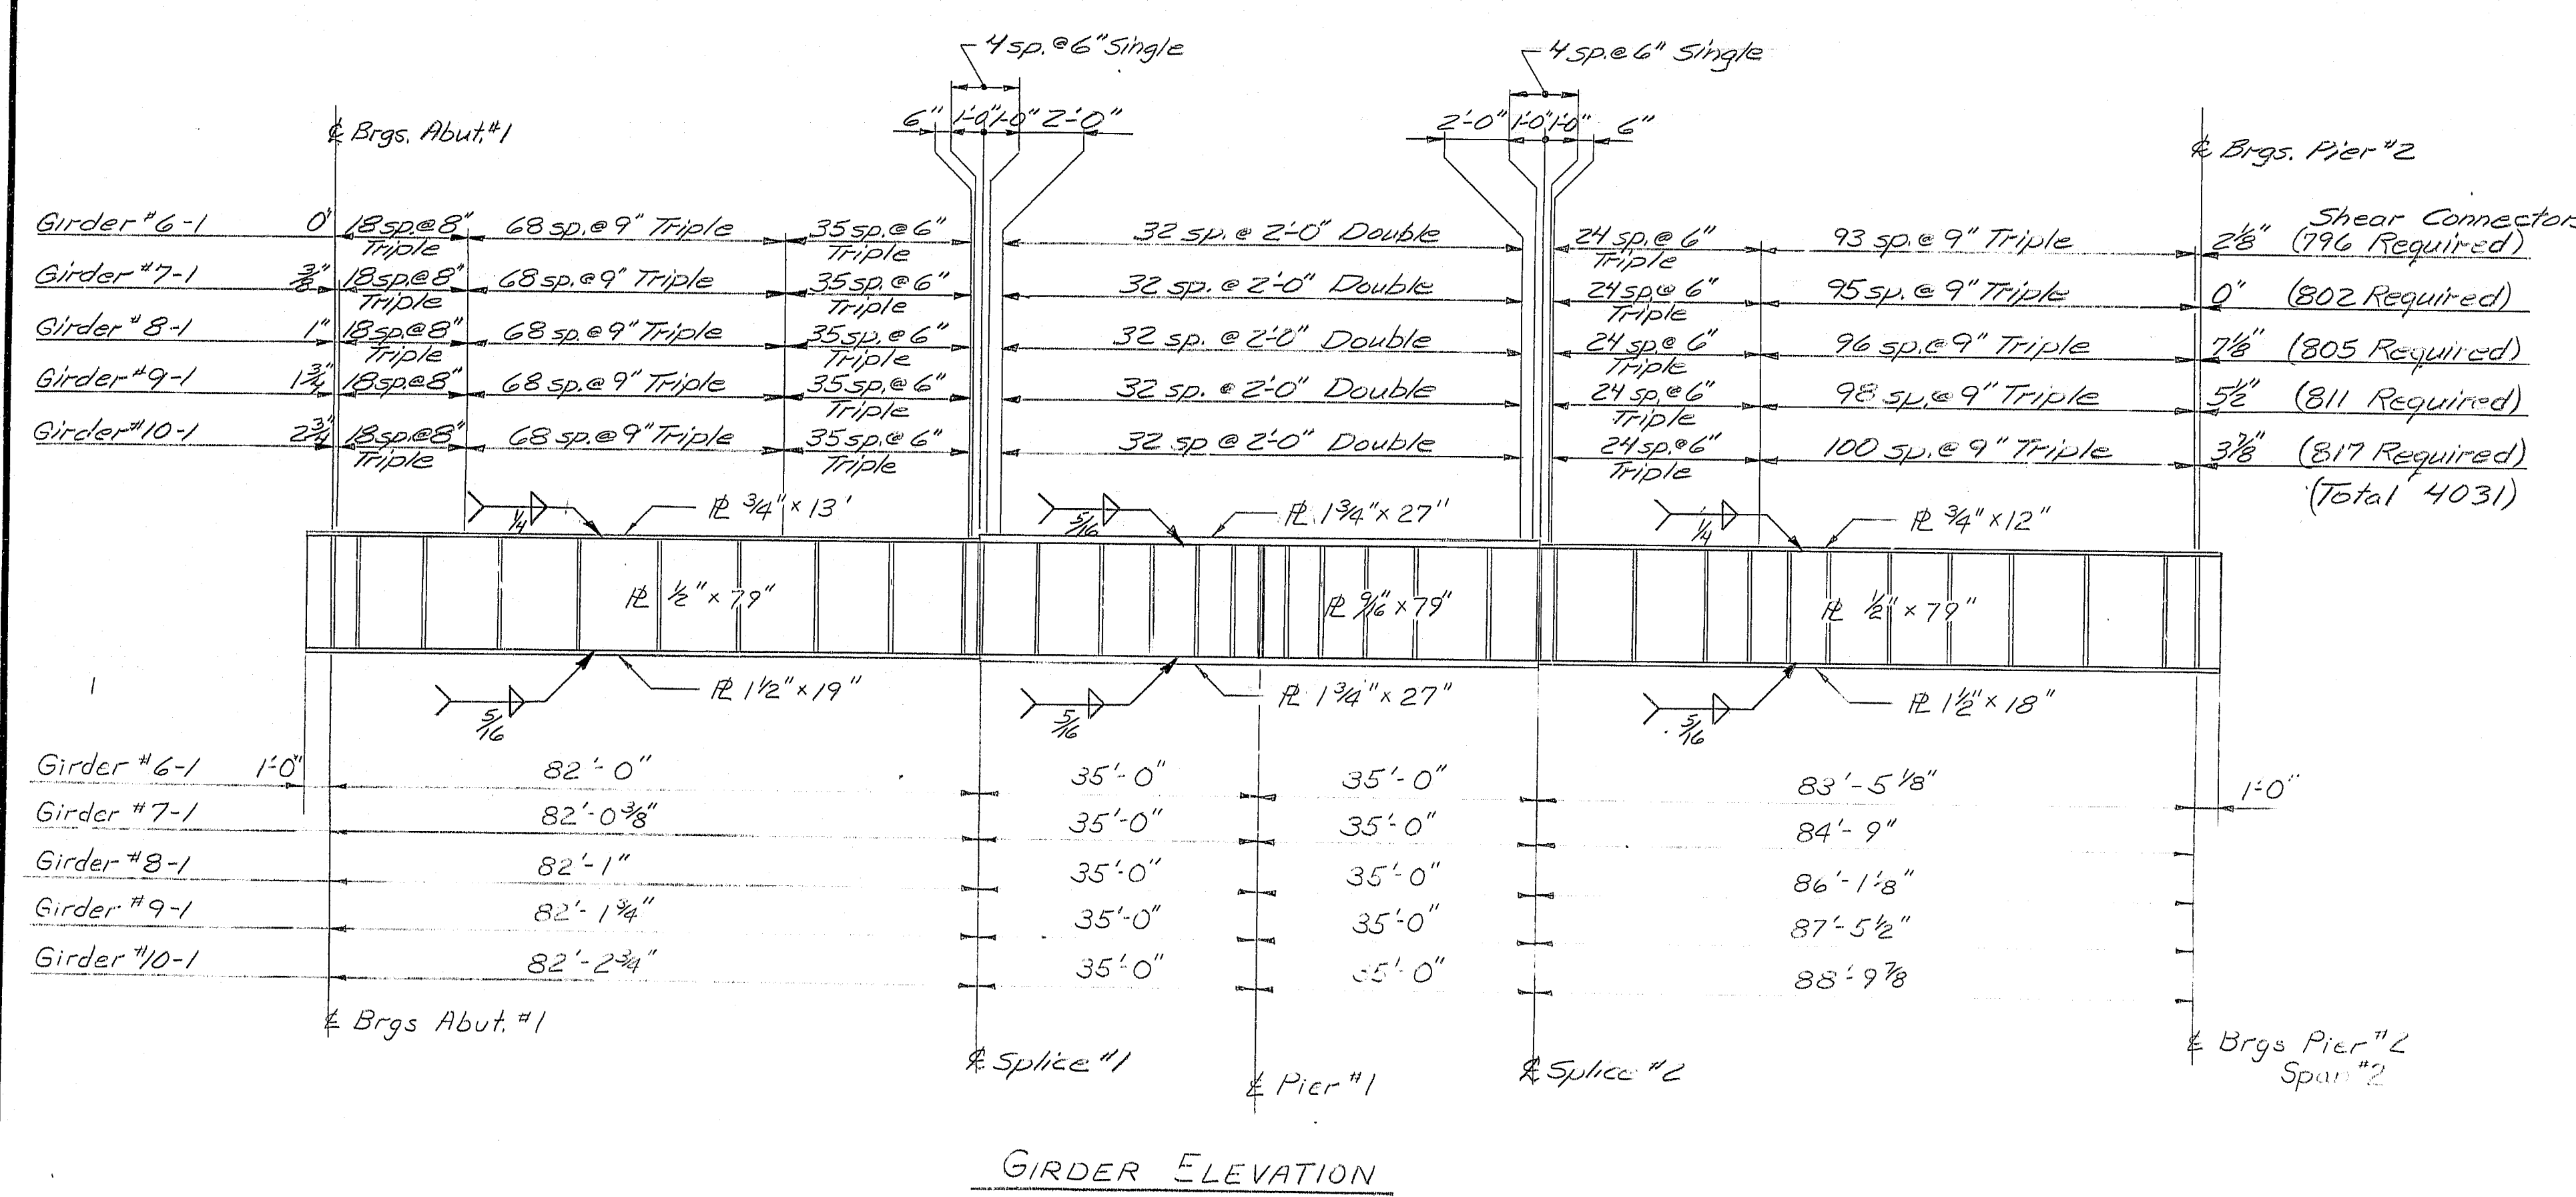 4 sp. @ 6" Single
4 sp. @ 6" Single
6" 1'-0" 1'-0" 2'-0"
2'-0" 1'-0" 1'-0" 6"
℄ Brgs. Abut. #1
℄ Brgs. Pier #2
Shear Connectors
Girder #6-1 0" 18 sp. @ 8" Triple 68 sp. @ 9" Triple 35 sp. @ 6" Triple 32 sp. @ 2'-0" Double 24 sp. @ 6" Triple 93 sp. @ 9" Triple 2 1/8" (796 Required)
Girder #7-1 3/8" 18 sp. @ 8" Triple 68 sp. @ 9" Triple 35 sp. @ 6" Triple 32 sp. @ 2'-0" Double 24 sp. @ 6" Triple 95 sp. @ 9" Triple 0" (802 Required)
Girder #8-1 1" 18 sp. @ 8" Triple 68 sp. @ 9" Triple 35 sp. @ 6" Triple 32 sp. @ 2'-0" Double 24 sp. @ 6" Triple 96 sp. @ 9" Triple 7 1/8" (805 Required)
Girder #9-1 1 3/4" 18 sp. @ 8" 68 sp. @ 9" Triple 35 sp. @ 6" Triple 32 sp. @ 2'-0" Double 24 sp. @ 6" Triple 98 sp. @ 9" Triple 5 1/2" (811 Required)
Girder #10-1 2 3/4" 18 sp. @ 8" Triple 68 sp. @ 9" Triple 35 sp. @ 6" Triple 32 sp @ 2'-0" Double 24 sp. @ 6" Triple 100 sp. @ 9" Triple 3 7/8" (817 Required)
(Total 4031)
1/4 ⅊ 3/4" x 13'
5/16 ⅊ 1 3/4" x 27"
1/4 ⅊ 3/4" x 12"
⅊ 1/2" x 79"
⅊ 9/16" x 79"
⅊ 1/2" x 79"
5/16 ⅊ 1 1/2" x 19"
5/16 ⅊ 1 3/4" x 27"
5/16 ⅊ 1 1/2" x 18"
Girder #6-1 1'-0" 82'-0" 35'-0" 35'-0" 83'-5 1/8" 1'-0"
Girder #7-1 82'-0 3/8" 35'-0" 35'-0" 84'-9"
Girder #8-1 82'-1" 35'-0" 35'-0" 86'-1 1/8"
Girder #9-1 82'-1 3/4" 35'-0" 35'-0" 87'-5 1/2"
Girder #10-1 82'-2 3/4" 35'-0" 35'-0" 88'-9 7/8
℄ Brgs Abut. #1
℄ Splice #1
℄ Pier #1
℄ Splice #2
℄ Brgs Pier #2
Span #2
GIRDER ELEVATION